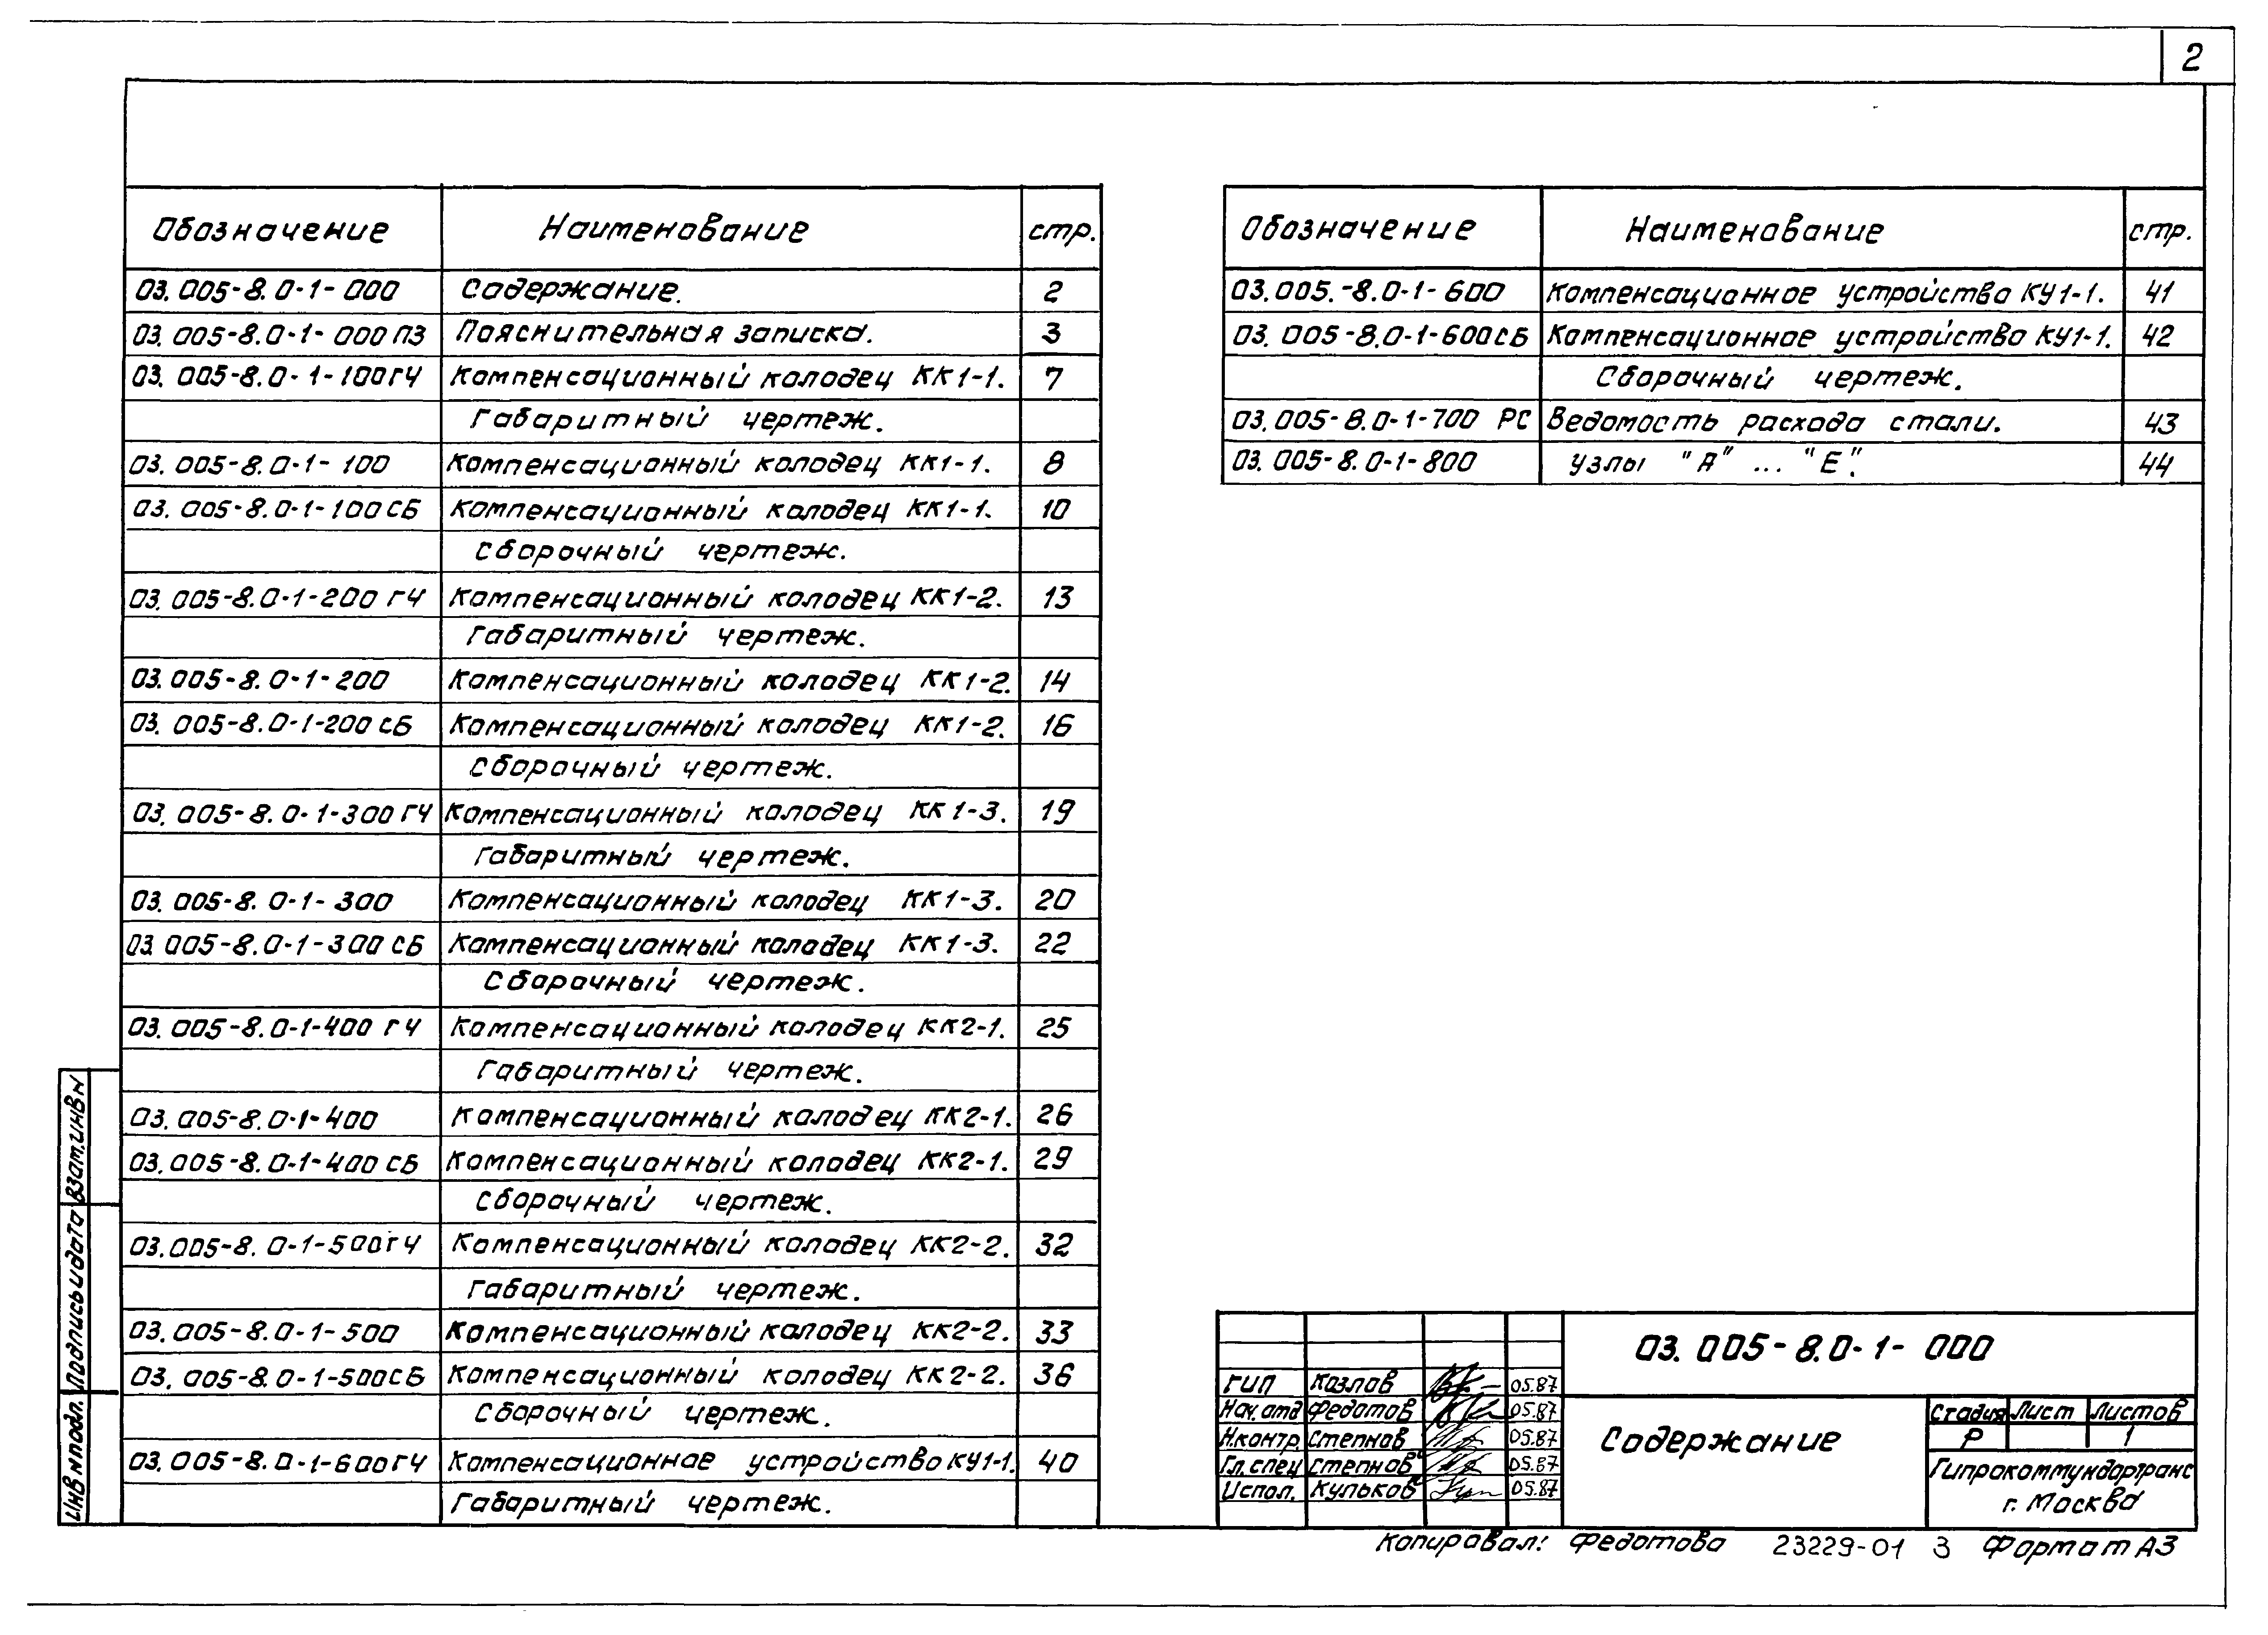 2
Обозначение Наименование стр.
03.005-8.0-1-000 Содержание. 2
03.005-8.0-1-000 ПЗ Пояснительная записка. 3
03.005-8.0-1-100ГЧ Компенсационный колодец КК1-1. 7
Габаритный чертеж.
03.005-8.0-1-100 Компенсационный колодец КК1-1. 8
03.005-8.0-1-100СБ Компенсационный колодец КК1-1. 10
Сборочный чертеж.
03.005-8.0-1-200 ГЧ Компенсационный колодец КК1-2. 13
Габаритный чертеж.
03.005-8.0-1-200 Компенсационный колодец КК1-2. 14
03.005-8.0-1-200 СБ Компенсационный колодец КК1-2. 16
Сборочный чертеж.
03.005-8.0-1-300 ГЧ Компенсационный колодец КК1-3. 19
Габаритный чертеж.
03.005-8.0-1-300 Компенсационный колодец КК1-3. 20
03.005-8.0-1-300 СБ Компенсационный колодец КК1-3. 22
Сборочный чертеж.
03.005-8.0-1-400 ГЧ Компенсационный колодец КК2-1. 25
Габаритный чертеж.
03.005-8.0-1-400 Компенсационный колодец КК2-1. 26
03.005-8.0-1-400 СБ Компенсационный колодец КК2-1. 29
Сборочный чертеж.
03.005-8.0-1-500ГЧ Компенсационный колодец КК2-2. 32
Габаритный чертеж.
03.005-8.0-1-500 Компенсационный колодец КК2-2. 33
03.005-8.0-1-500СБ Компенсационный колодец КК2-2. 36
Сборочный чертеж.
03.005-8.0-1-600ГЧ Компенсационное устройство КУ1-1. 40
Габаритный чертеж.
Обозначение Наименование стр.
03.005.-8.0-1-600 Компенсационное устройство КУ1-1. 41
03.005-8.0-1-600СБ Компенсационное устройство КУ1-1. 42
Сборочный чертеж.
03.005-8.0-1-700 РС Ведомость расхода стали. 43
03.005-8.0-1-800 Узлы "А" ... "Е". 44
Взам.инв н
Подпись и дата
Инв н подл.
03.005-8.0-1-000
ГИП Козлов 05.87
Нач.отд Федотов 05.87
Н.контр. Степнов 05.87
Гл.спец Степнов 05.87
Испол. Кульков 05.87
Содержание
Стадия Лист Листов
Р 1
Гипрокоммундортранс
г. Москва
Копировал: Федотова 23229-01 3 Формат А3